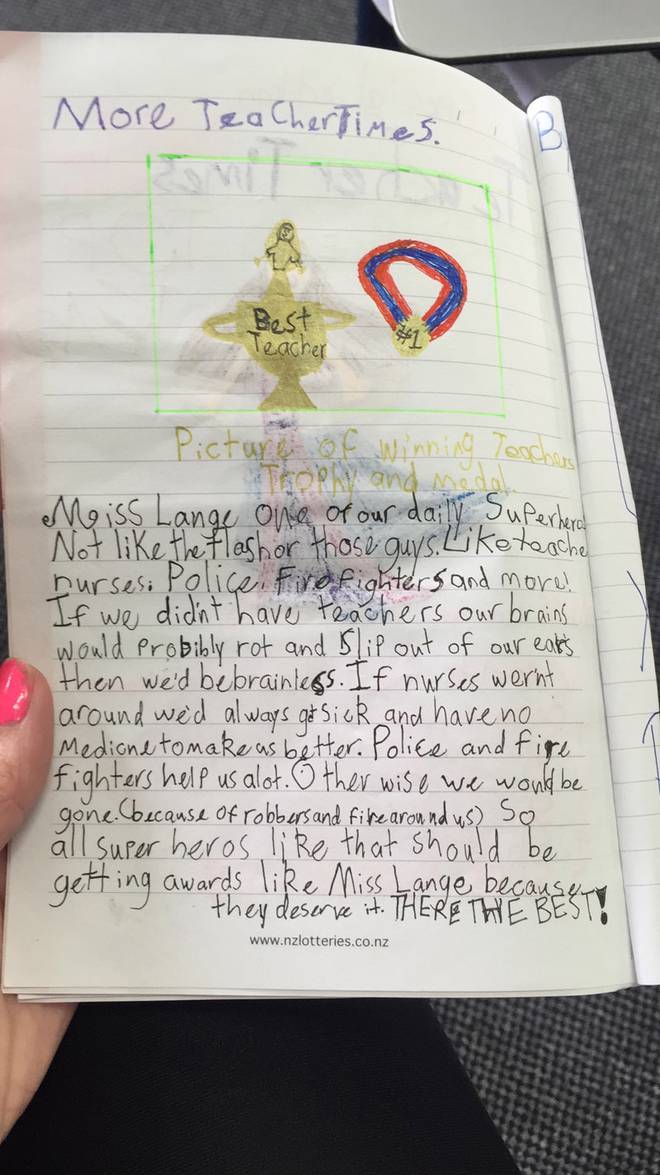 More TeacherTimes.
B
Teacher Times
Best
Teacher
#1
Picture of winning Teachers
Trophy and medal
Miss Lange one of our daily Superhero
Not like the flash or those guys. Like teache
nurses. Police. Fire fighters and more!
If we didn't have teachers our brains
would probibly rot and slip out of our ears
then we'd be brainless. If nurses wernt
around we'd always get sick and have no
Medicne to make us better. Police and fire
fighters help us alot. Other wise we would be
gone. (because of robbers and fire around us) So
all super heros like that should be
getting awards like Miss Lange because
they deserve it. THERE THE BEST!
www.nzlotteries.co.nz